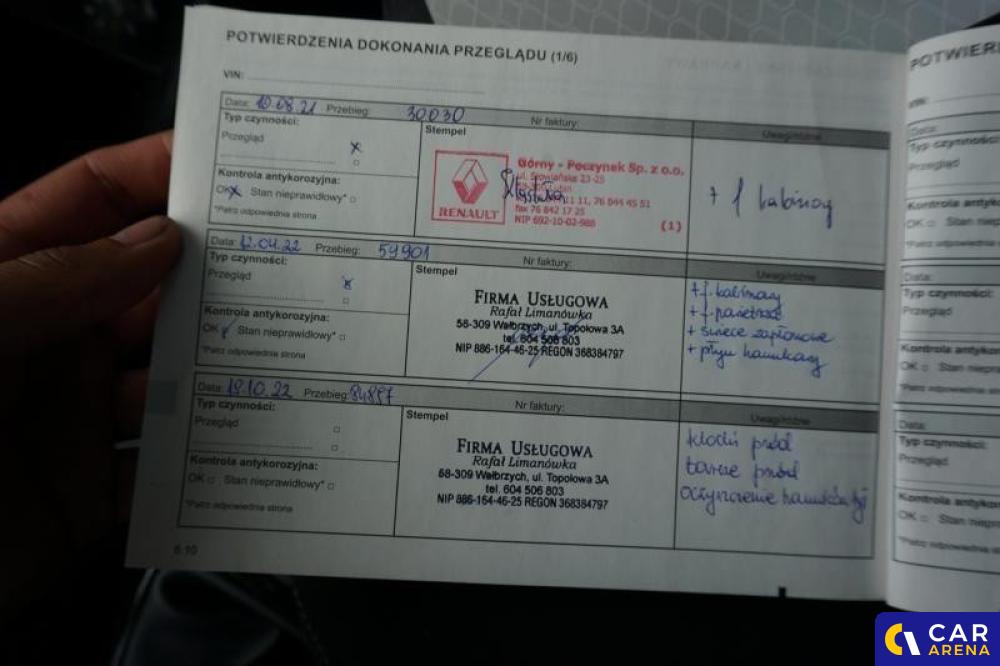 POTWIERDZENIA DOKONANIA PRZEGLĄDU (1/6)
VIN:
Data: 10.08.21 Przebieg: 30030 Nr faktury:
Typ czynności:
Przegląd x
Kontrola antykorozyjna:
OK x Stan nieprawidłowy*
*Patrz odpowiednia strona
Stempel
RENAULT
Górny - Poczynek Sp. z o.o.
ul. Słowiańska 23-25
fax 76 842 17 25
NIP 692-10-02-988
(1)
Uwagi/różne
+ f kabinowy
Data: 12.04.22 Przebieg: 59901 Nr faktury:
Typ czynności:
Przegląd x
Kontrola antykorozyjna:
OK Stan nieprawidłowy*
*Patrz odpowiednia strona
Stempel
FIRMA USŁUGOWA
Rafał Limanówka
58-309 Wałbrzych, ul. Topolowa 3A
tel. 604 506 803
NIP 886-164-46-25 REGON 368384797
Uwagi/różne
+ f. kabinowy
+ f. powietrza
+ świece zapłonowe
+ płyn hamulcowy
Data: 19.10.22 Przebieg: 84897 Nr faktury:
Typ czynności:
Przegląd
Kontrola antykorozyjna:
OK Stan nieprawidłowy*
*Patrz odpowiednia strona
Stempel
FIRMA USŁUGOWA
Rafał Limanówka
58-309 Wałbrzych, ul. Topolowa 3A
tel. 604 506 803
NIP 886-164-46-25 REGON 368384797
Uwagi/różne
klocki przód
tarcze przód
6.10
VIN:
Data:
Typ czynności:
Przegląd
Kontrola
OK Stan
*Patrz odpowiednia
Data:
Typ czynności:
Przegląd
Kontrola
OK Stan
*Patrz odpowiednia
Data:
Typ czynności:
Przegląd
Kontrola
OK Stan
*Patrz odpowiednia
CAR
ARENA